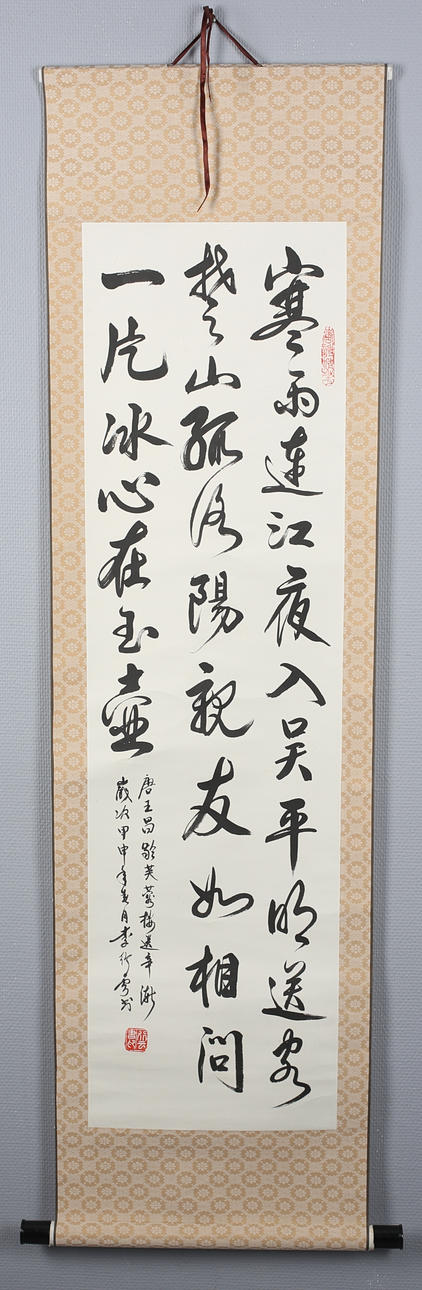 寒雨連江夜入吴平明送客
楚山孤洛陽親友如相問
一片冰心在玉壺
唐王昌齡芙蓉樓送辛漸
歲次甲申年月李行雲书